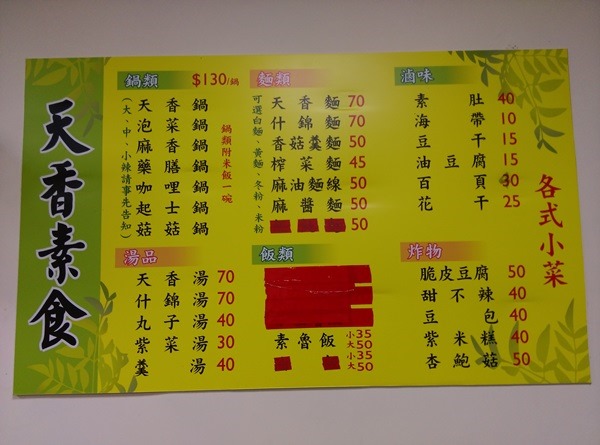 天香素食
鍋類 $130/鍋
天香鍋
泡菜鍋
麻香鍋
藥膳鍋
咖哩鍋
起士鍋
菇菇鍋
(大、中、小辣請事先告知)
鍋類附米飯一碗
麵類
天香麵 70
什錦麵 70
香菇羹麵 50
榨菜麵 45
麻油麵線 50
麻醬麵 50
50
可選白麵、黃麵、冬粉、米粉
滷味
素肚 40
海帶 10
豆干 15
油豆腐 15
百頁 30
花干 25
各式小菜
湯品
天香湯 70
什錦湯 70
丸子湯 40
紫菜湯 30
羹湯 40
飯類
素魯飯 小35
大50
小35
大50
炸物
脆皮豆腐 50
甜不辣 40
豆包 40
紫米糕 40
杏鮑菇 50